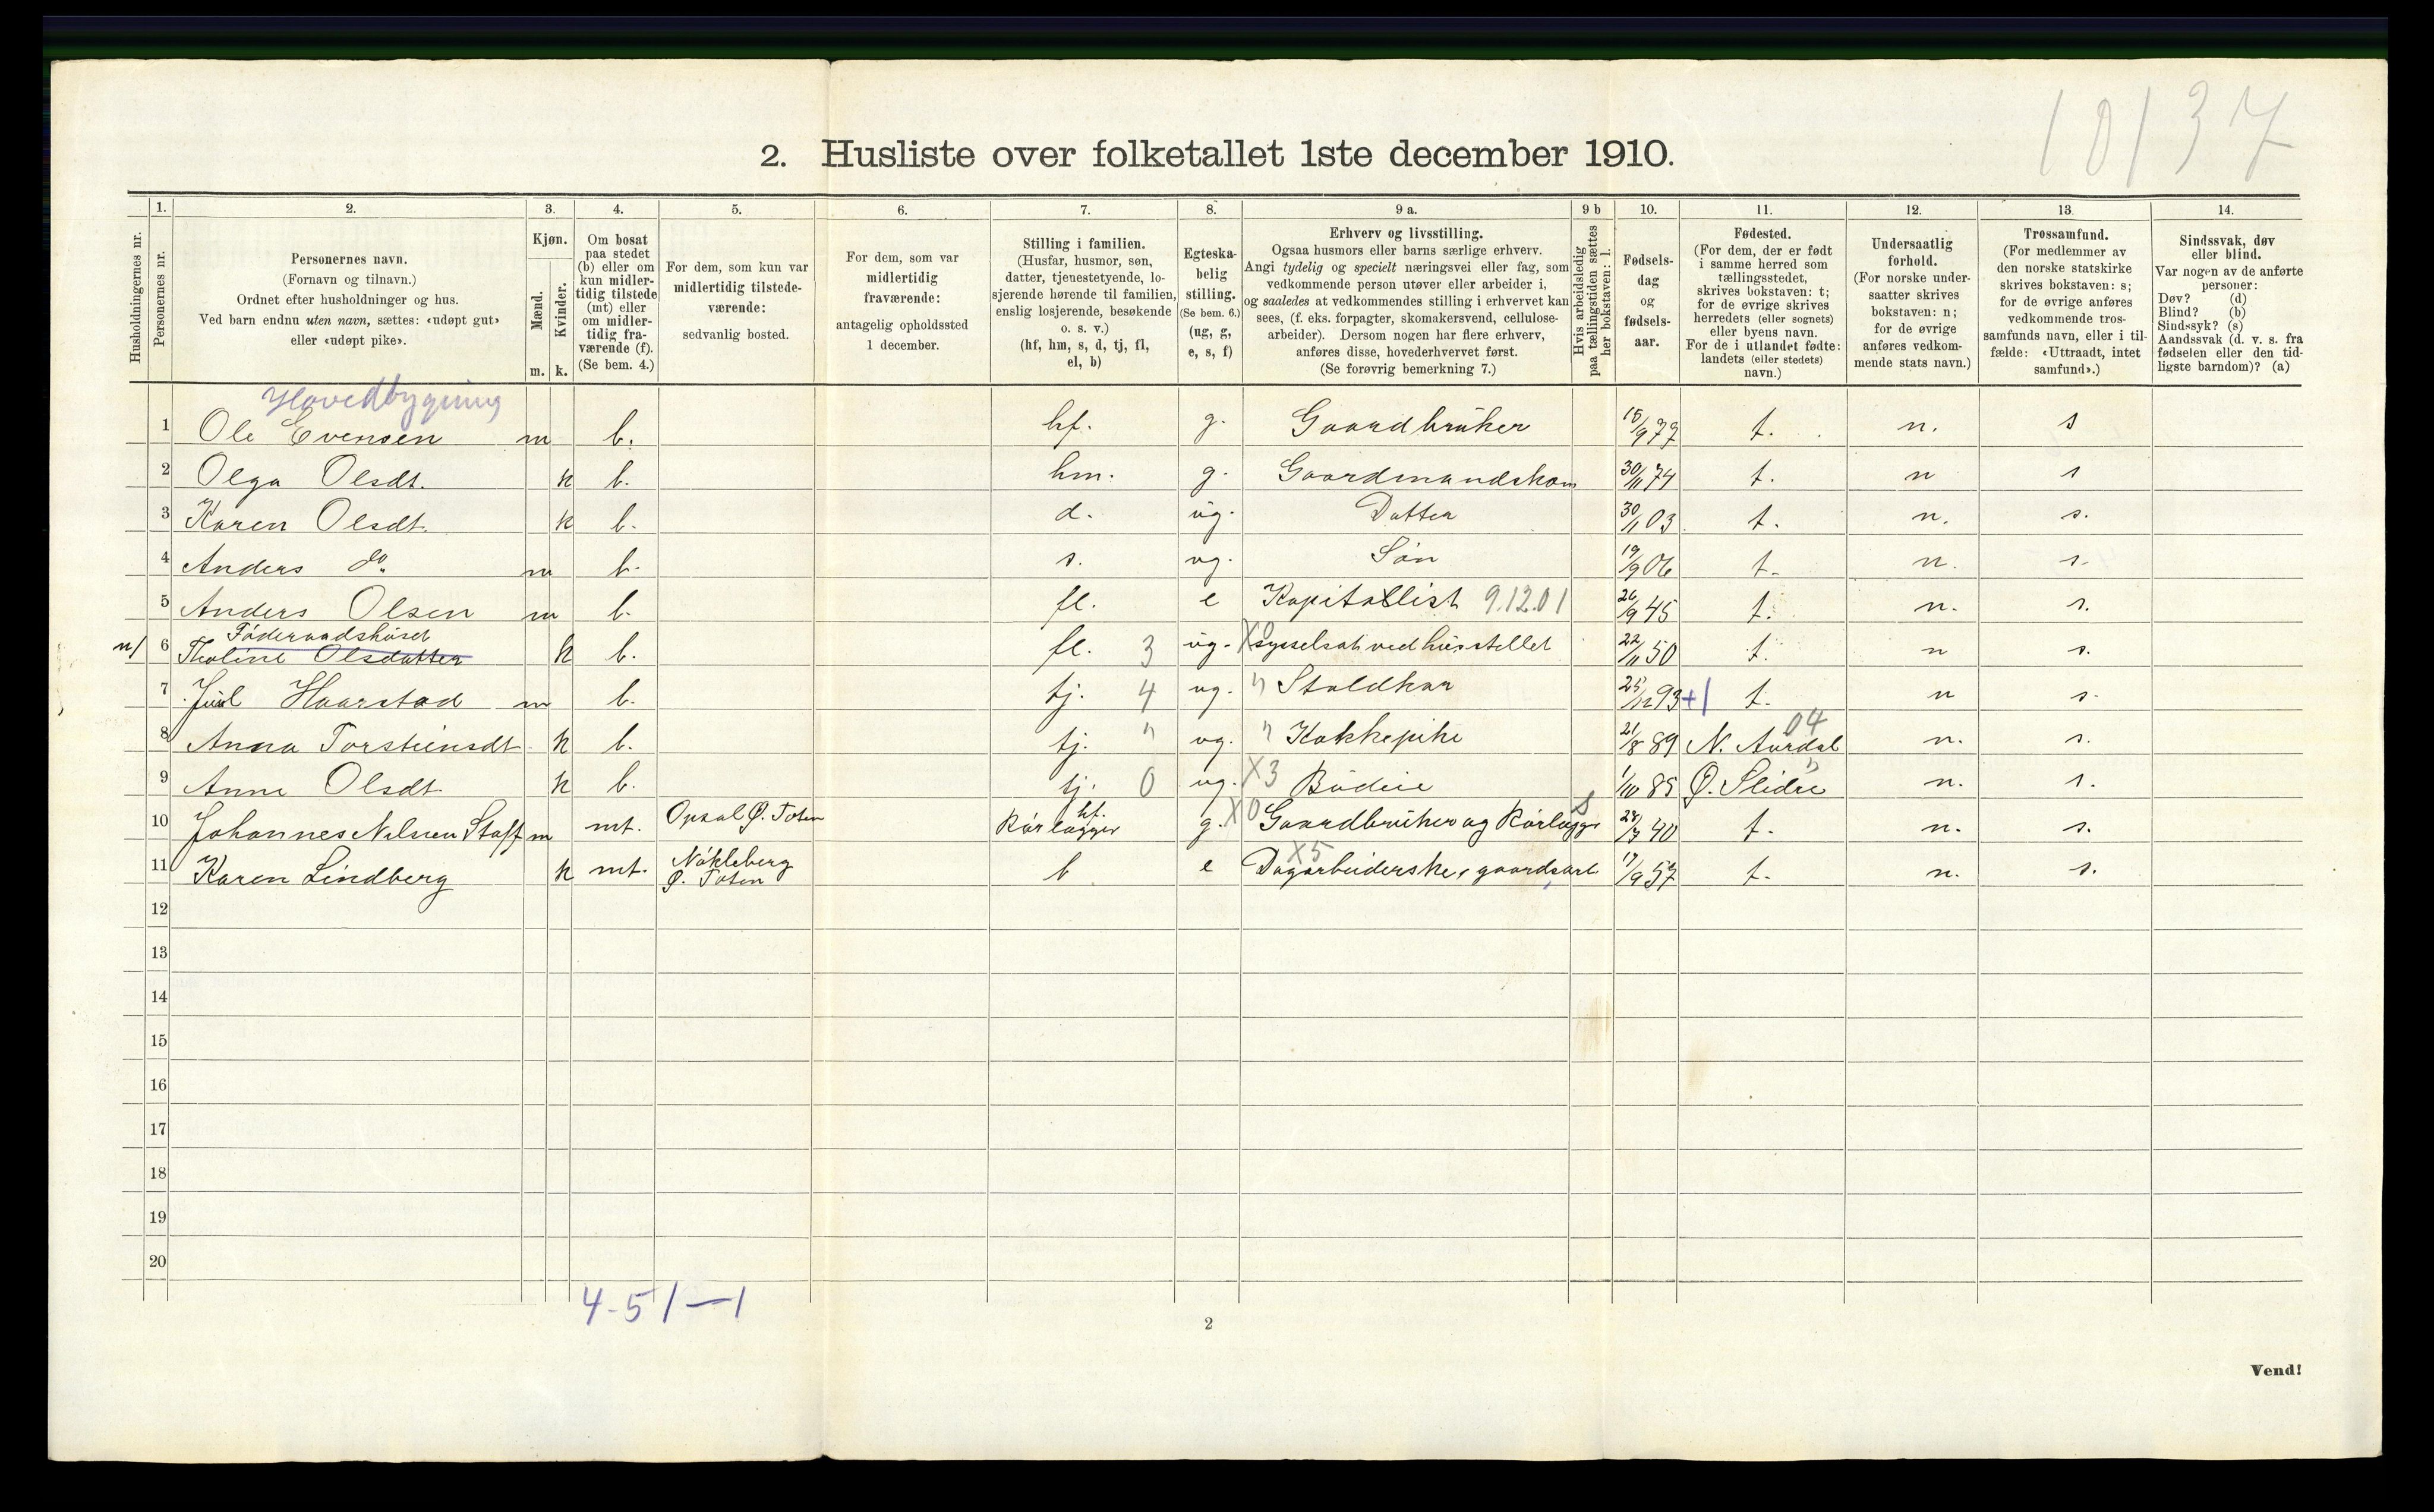 10137
2. Husliste over folketallet 1ste december 1910.
Husholdningernes nr.
1.
Personernes nr.
2.
Personernes navn.
(Fornavn og tilnavn.)
Ordnet efter husholdninger og hus.
Ved barn endnu uten navn, sættes: «udøpt gut»
eller «udøpt pike».
3.
Kjøn.
Mænd.
Kvinder.
m. k.
4.
Om bosat
paa stedet
(b) eller om
kun midler-
tidig tilstede
(mt) eller
om midler-
tidig fra-
værende (f).
(Se bem. 4.)
5.
For dem, som kun var
midlertidig tilstede-
værende:
sedvanlig bosted.
6.
For dem, som var
midlertidig
fraværende:
antagelig opholdssted
1 december.
7.
Stilling i familien.
(Husfar, husmor, søn,
datter, tjenestetyende, lo-
sjerende hørende til familien,
enslig losjerende, besøkende
o. s. v.)
(hf, hm, s, d, tj, fl,
el, b)
8.
Egteska-
belig
stilling.
(Se bem. 6.)
(ug, g,
e, s, f)
9 a.
Erhverv og livsstilling.
Ogsaa husmors eller barns særlige erhverv.
Angi tydelig og specielt næringsvei eller fag, som
vedkommende person utøver eller arbeider i,
og saaledes at vedkommendes stilling i erhvervet kan
sees, (f. eks. forpagter, skomakersvend, cellulose-
arbeider). Dersom nogen har flere erhverv,
anføres disse, hovederhvervet først.
(Se forøvrig bemerkning 7.)
9 b
Hvis arbeidsledig
paa tællingstiden sættes
her bokstaven: l.
10.
Fødsels-
dag
og
fødsels-
aar.
11.
Fødested.
(For dem, der er født
i samme herred som
tællingsstedet,
skrives bokstaven: t;
for de øvrige skrives
herredets (eller sognets)
eller byens navn.
For de i utlandet fødte:
landets (eller stedets)
navn.)
12.
Undersaatlig
forhold.
(For norske under-
saatter skrives
bokstaven: n;
for de øvrige
anføres vedkom-
mende stats navn.)
13.
Trossamfund.
(For medlemmer av
den norske statskirke
skrives bokstaven: s;
for de øvrige anføres
vedkommende tros-
samfunds navn, eller i til-
fælde: «Uttraadt, intet
samfund».)
14.
Sindssvak, døv
eller blind.
Var nogen av de anførte
personer:
Døv? (d)
Blind? (b)
Sindssyk? (s)
Aandssvak (d. v. s. fra
fødselen eller den tid-
ligste barndom)? (a)
Hovedbygning
1 Ole Evensen m b. hf. g. Gaardbruker 15/9 77 t. n. s
2 Olga Olsdt. k b. hm. g. Gaardmandskone 30/11 74 t. n s
3 Karen Olsdt. k b. d. ug. Datter 30/11 03 t. n. s.
4 Anders do. m b. s. ug. Søn 19/9 06 t. n. s.
5 Anders Olsen m b. fl. e Kapitallist 9.12.01 26/9 45 t. n. s.
Føderaadshuset
n/ 6 Tholine Olsdatter k b. fl. 3 ug. X0 sysselsat ved husstellet 22/11 50 t. n s.
7 Jul Haarstad m b. tj. 4 ug. " Staldkar 25/12 93 +1 t. n s.
8 Anna Torsteinsdt. k b. tj. " ug. " Kokkepike 21/8 89 N. Aurdal 04 n. s.
9 Anne Olsdt. k b. tj. 0 ug. X3 Budeie 1/10 85 Ø. Slidre " n. s.
10 Johannes Nilsen Staff m mt. Opsal Ø. Toten hf. Kørlægger g. X0 Gaardbruker og Kørlægger 28/7 40 t. n. s.
11 Karen Lindberg k mt. Nøkleberg Ø. Toten b e X5 Dagarbeiderske, gaardsarb 17/9 57 t. n. s.
12
13
14
15
16
17
18
19
20
4-5 1—1
2
Vend!